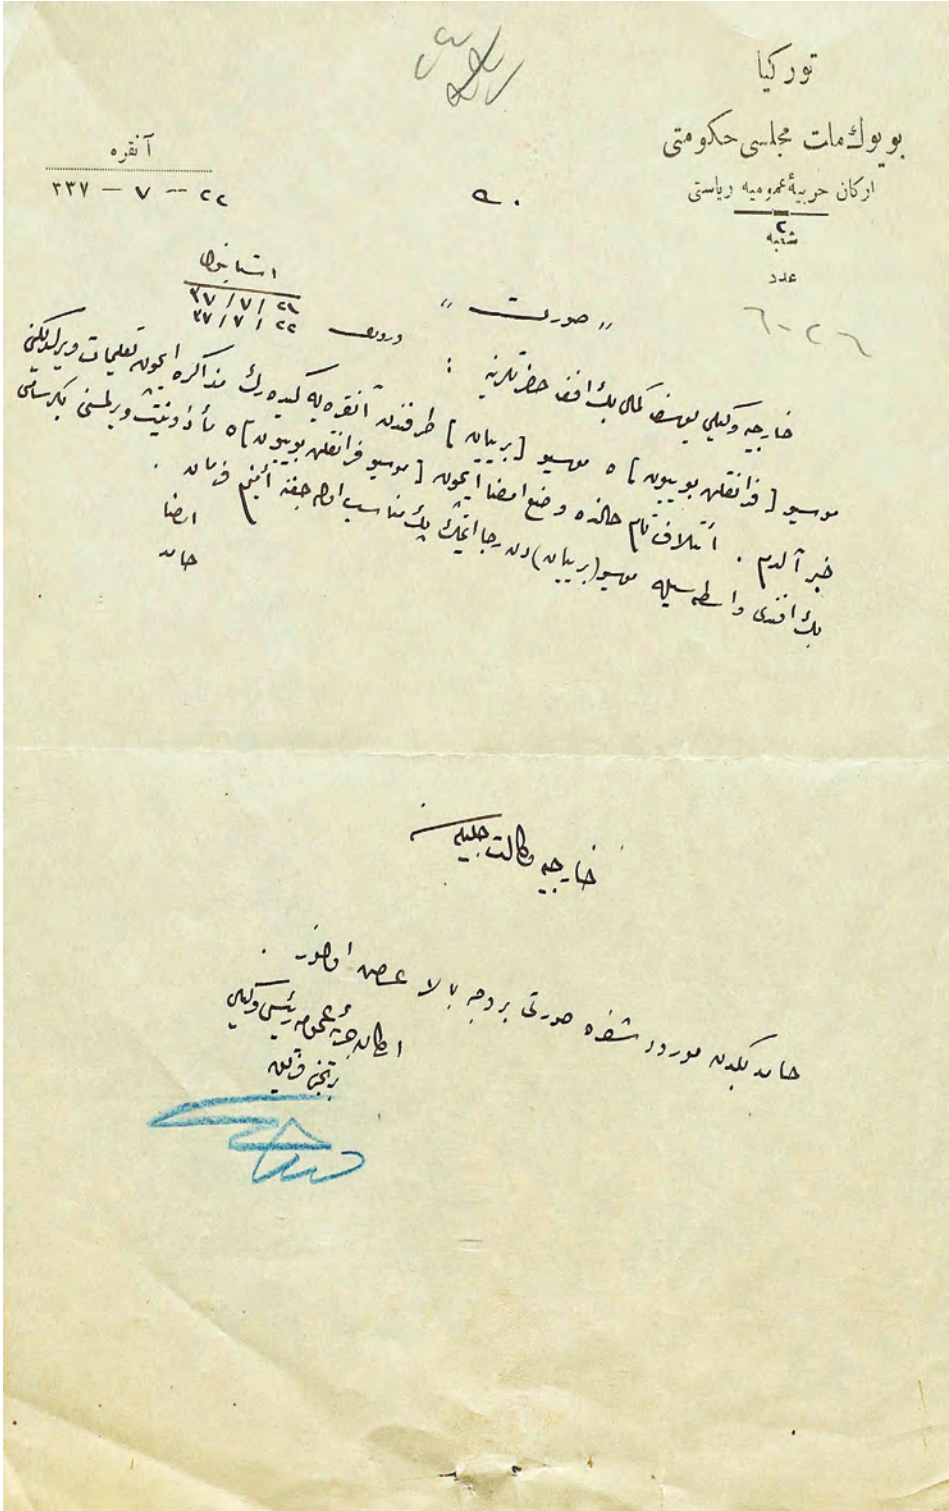 توركيا
بويوك ملت مجلسى حكومتى
اركان حربيۀ عموميه رياستى
شعبه
٢
عدد
٦-٢٦
آنقره
٢٢ - ٧ - ٣٣٧
استانبول
٢١ / ٧ / ٣٧
ورودى ٢٢ / ٧ / ٣٧
« صورت »
خارجيه وكيلى يوسف كمال بك افندى حضرتلرينه :
موسيو [ فرانقلن بوييون ] ه موسيو [ بريان ] طرفندن آنقره يه كيده رك مذاكره ايچون تعليمات ويرلديكنى
خبر آلدم . ائتلاف تام حالنده وضع امضا ايچون [ موسيو فرانقلن بوييون ] ه مأذونيت ويرلمسنى بكر سامى
بك افندى واسطه سيله موسيو (بريان) دن رجا ايتمك پك مناسب اوله جغنه أمينم فرمان .
امضا
حامد
خارجيه وكالت جليله سنه
حامد بكدن مورود شفره صورتى بروجه بالا عرض اولنور .
اركان حربيۀ عموميه رئيسى وكيلى
برنجى فريق